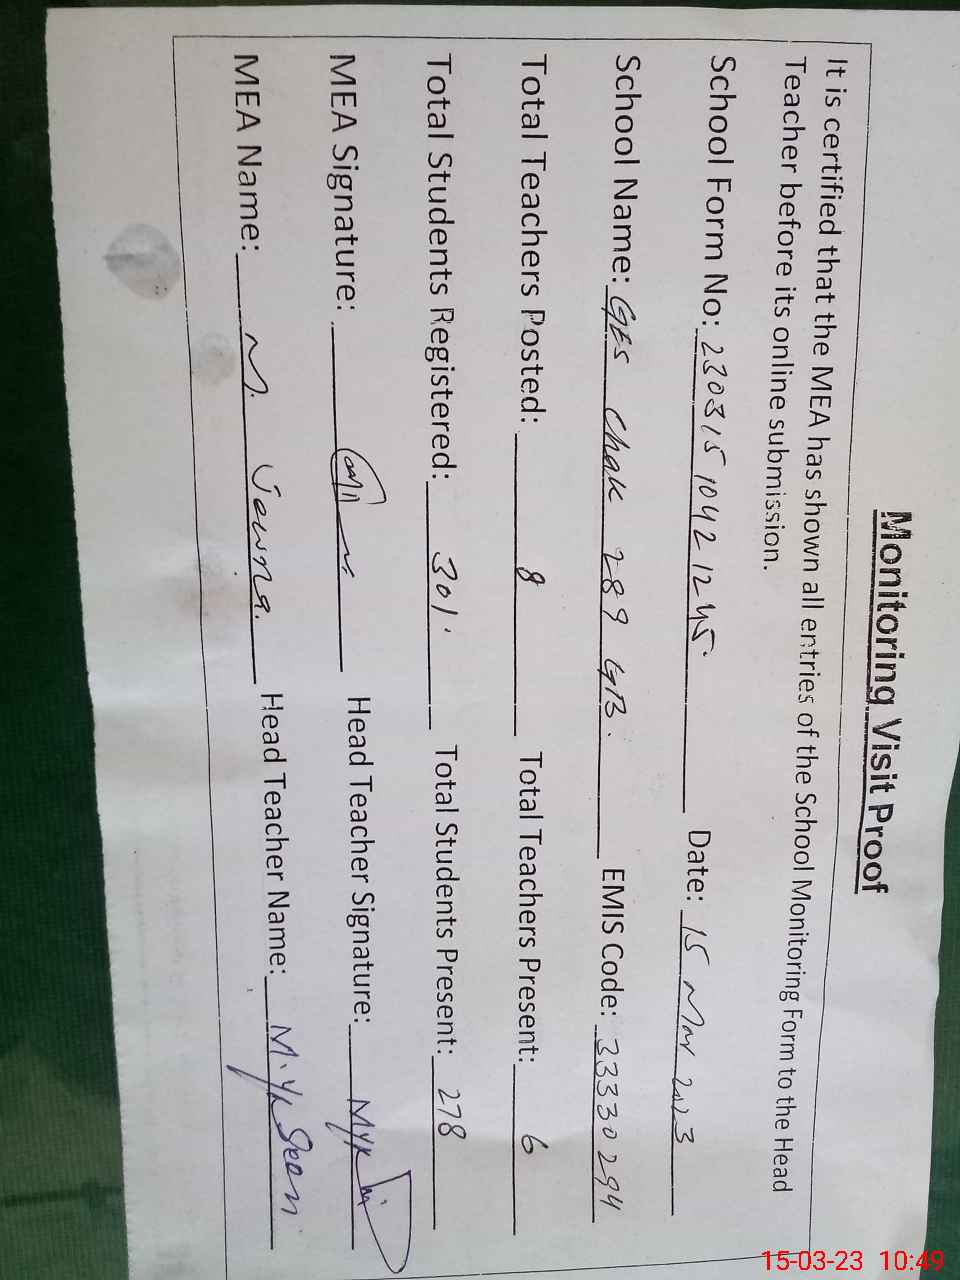 Monitoring Visit Proof
It is certified that the MEA has shown all entries of the School Monitoring Form to the Head
Teacher before its online submission.
School Form No: 23031510421245. Date: 15 Mar 2023
School Name: GES Chak 289 GB. EMIS Code: 33330294
Total Teachers Posted: 8 Total Teachers Present: 6
Total Students Registered: 301. Total Students Present: 278
MEA Signature: Head Teacher Signature:
MEA Name: M. Head Teacher Name:
15-03-23 10:49